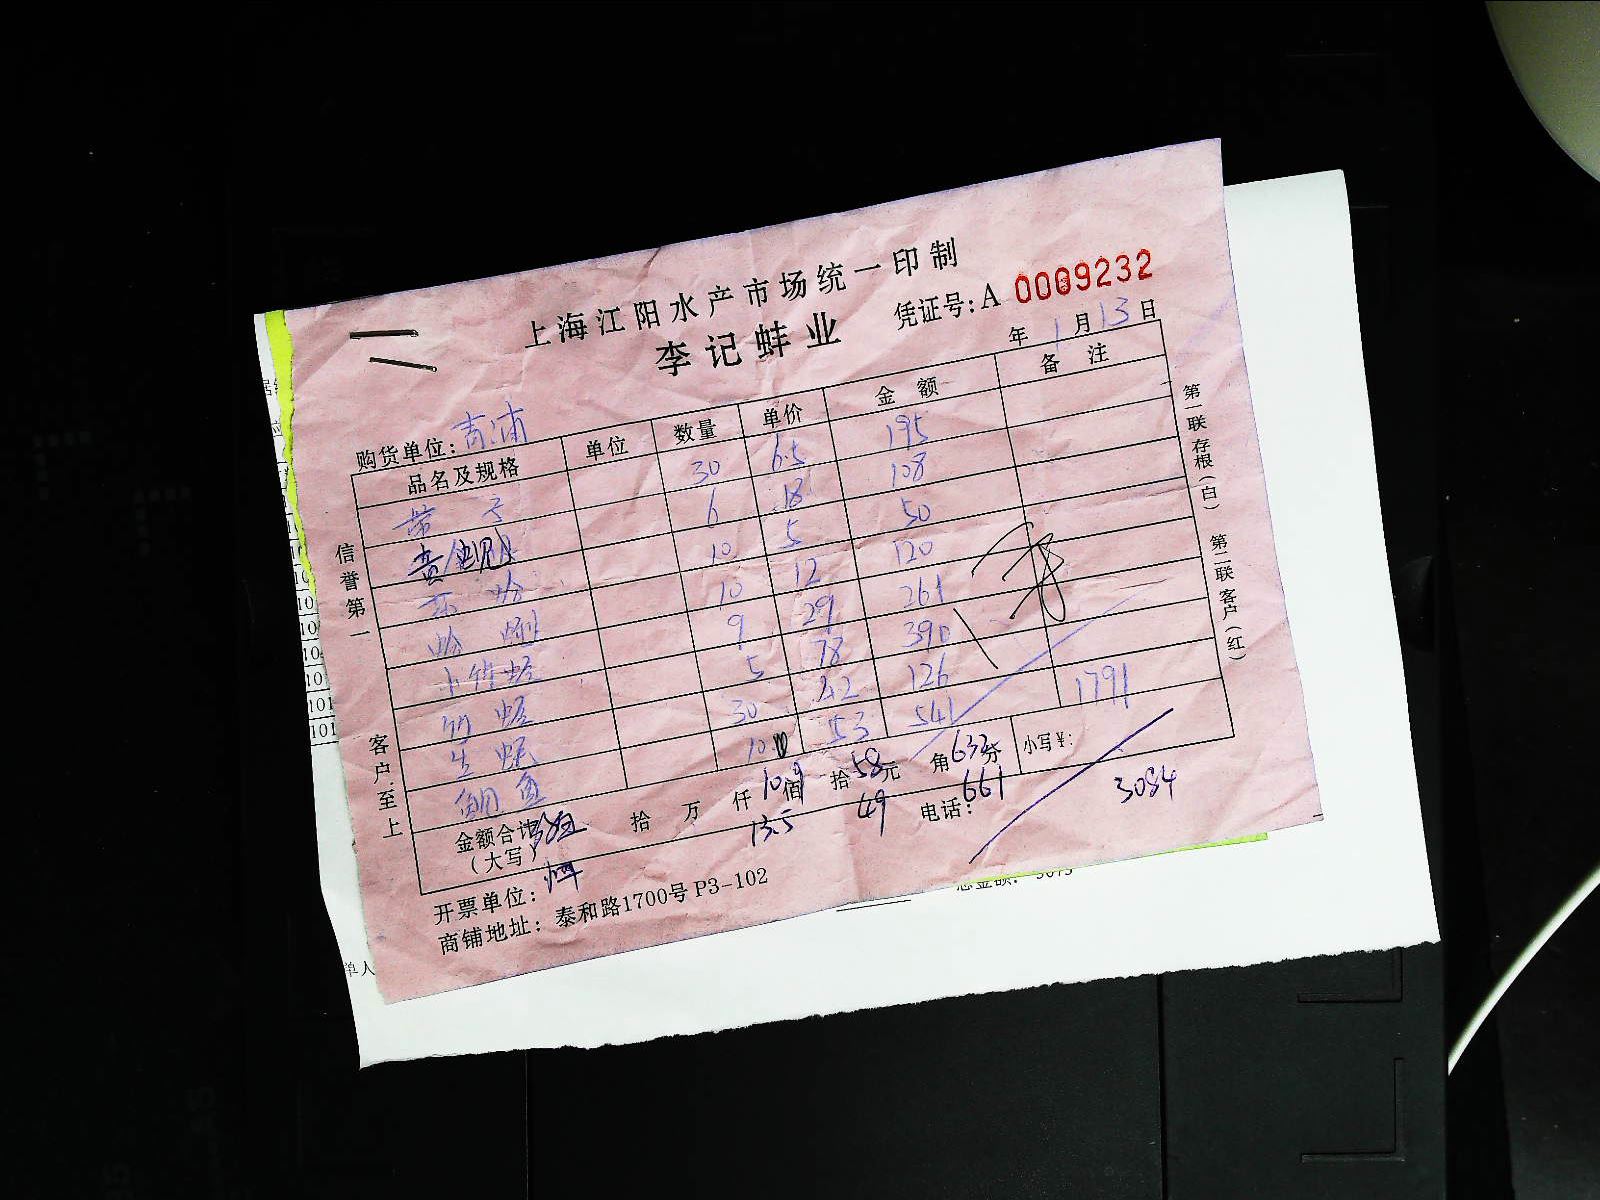 上海江阳水产市场统一印制
李记蚌业
凭证号:A 0009232
年 1 月 13 日
购货单位: 青浦
品名及规格 单位 数量 单价 金额 备注
带子 30 6.5 195
6 18 108
10 5 50
哈 10 12 120
小竹蛏 9 29 261
竹蛏 5 78 390
生蚝 30 4.2 126
鲍鱼 10 53 541
1791
金额合计 拾 万 仟 佰 拾 元 角 分 小写¥:
(大写)
10.9 58 632
13.5 49 661
3084
开票单位: 电话:
商铺地址: 泰和路1700号 P3-102
信誉第一
客户至上
第一联存根(白)
第二联客户(红)
总金额:
单人
101
101